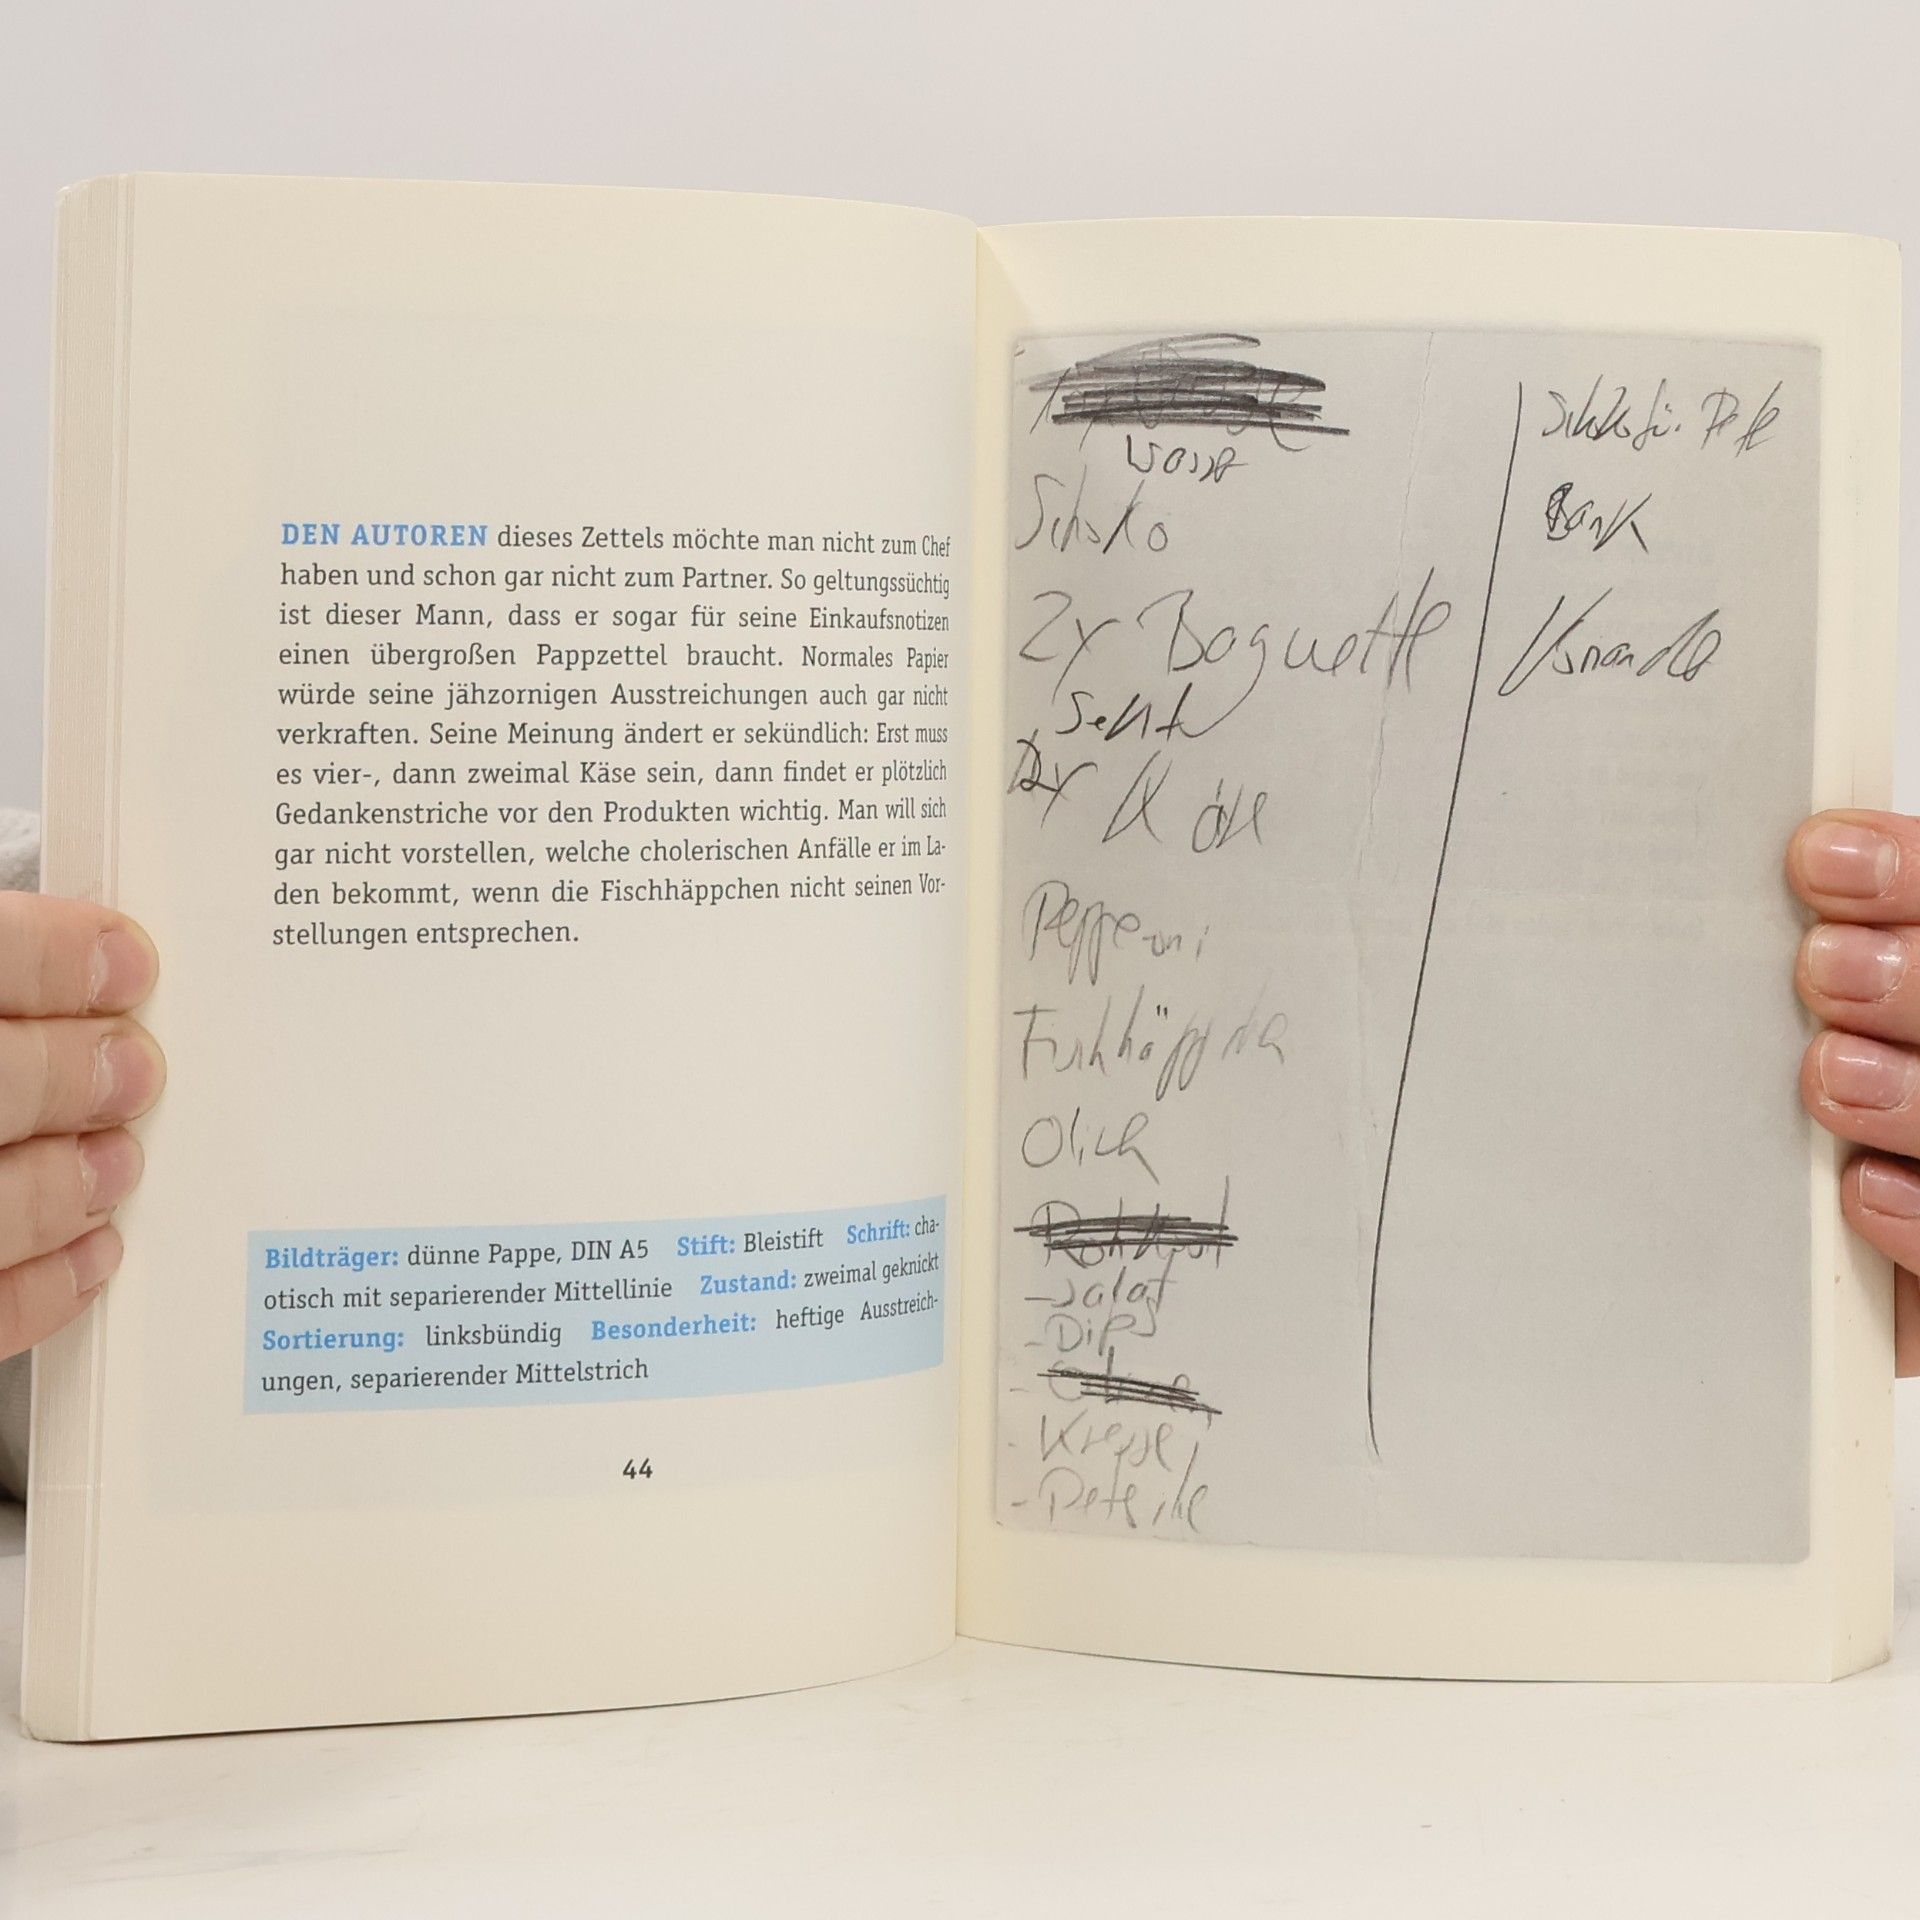 DEN AUTOREN dieses Zettels möchte man nicht zum Chef
haben und schon gar nicht zum Partner. So geltungssüchtig
ist dieser Mann, dass er sogar für seine Einkaufsnotizen
einen übergroßen Pappzettel braucht. Normales Papier
würde seine jähzornigen Ausstreichungen auch gar nicht
verkraften. Seine Meinung ändert er sekündlich: Erst muss
es vier-, dann zweimal Käse sein, dann findet er plötzlich
Gedankenstriche vor den Produkten wichtig. Man will sich
gar nicht vorstellen, welche cholerischen Anfälle er im La-
den bekommt, wenn die Fischhäppchen nicht seinen Vor-
stellungen entsprechen.
Bildträger: dünne Pappe, DIN A5 Stift: Bleistift Schrift: cha-
otisch mit separierender Mittellinie Zustand: zweimal geknickt
Sortierung: linksbündig Besonderheit: heftige Ausstreich-
ungen, separierender Mittelstrich
44
Wasser
Schoko
2x Baguette
Sekt
2x Käse
Pepperoni
Fischhäppchen
- Salat
- Dips
- Kresse
- Petersilie
Bank